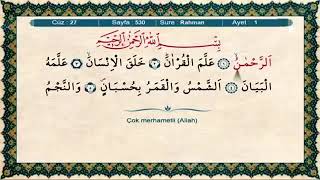 Cüz : 27 Sayfa : 530 Sure : Rahman Ayet : 1
بِسْمِ اللّٰهِ الرَّحْمٰنِ الرَّحِيمِ
اَلرَّحْمٰنُۙ ﴿١﴾ عَلَّمَ الْقُرْاٰنَۜ ﴿٢﴾ خَلَقَ الْاِنْسَانَۙ ﴿٣﴾ عَلَّمَهُ
الْبَيَانَ ﴿٤﴾ اَلشَّمْسُ وَالْقَمَرُ بِحُسْبَانٍۖ ﴿٥﴾ وَالنَّجْمُ
Çok merhametli (Allah)